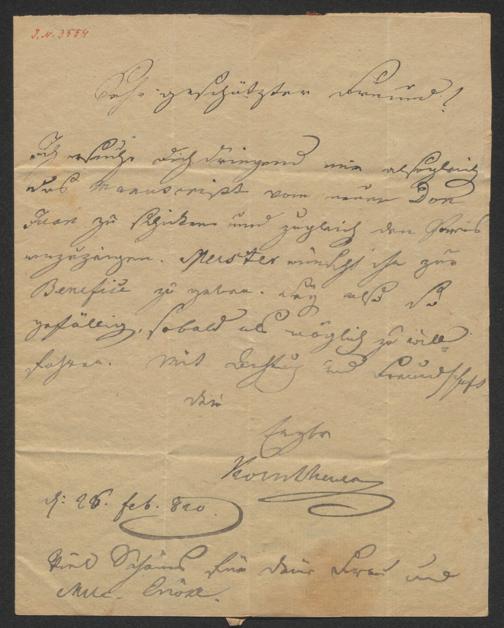 I.N. 3554
Sehr geschätzter Freund!
Ich ersuche Dich dringend mir alsogleich
das Manuscript vom neuen Don
Juan zu schicken und zugleich den Preis
anzuzeigen. Meister wünscht ihn zur
Benefice zu geben. Sey also so
gefällig, sobald als möglich zu will=
fahren. Mit Achtung und Freundschaft
dein
Korntheuer
d: 26. feb. 820.
Viel Schönes für deine Frau und